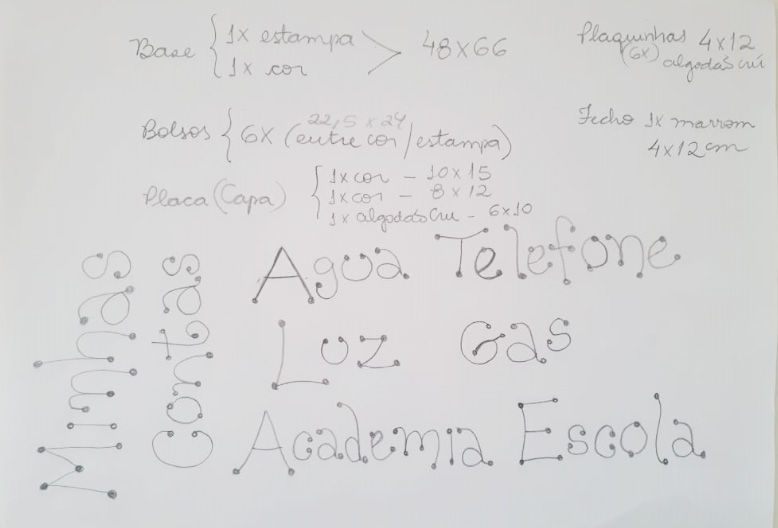 Base { 1x estampa
1x cor > 48x66
Plaquinhas 4x12
(6x) algodão crú
Bolsos { 6x (entre cor/estampa)
22,5 x 24
Fecho 1x marrom
4x12cm
Placa (Capa) { 1x cor - 10x15
1x cor - 8x12
1x algodão cru - 6x10
Minhas
Contas
Agua Telefone
Luz Gas
Academia Escola